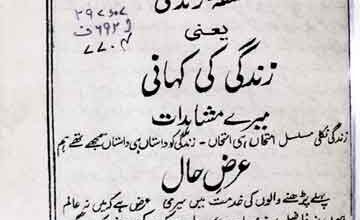 زندگی
۲۹۷۰۵۷
یعنی
زندگی کی کہانی
میرے مشاہدات
زندگی نکلی مسلسل امتحاں ہی امتحاں - زندگی کو داستاں ہی داستاں سمجھے تھے ہم
عرضِ حال
پہلے پڑھنے والوں کی خدمت میں میری عرض ہے کہ میں نہ عالم